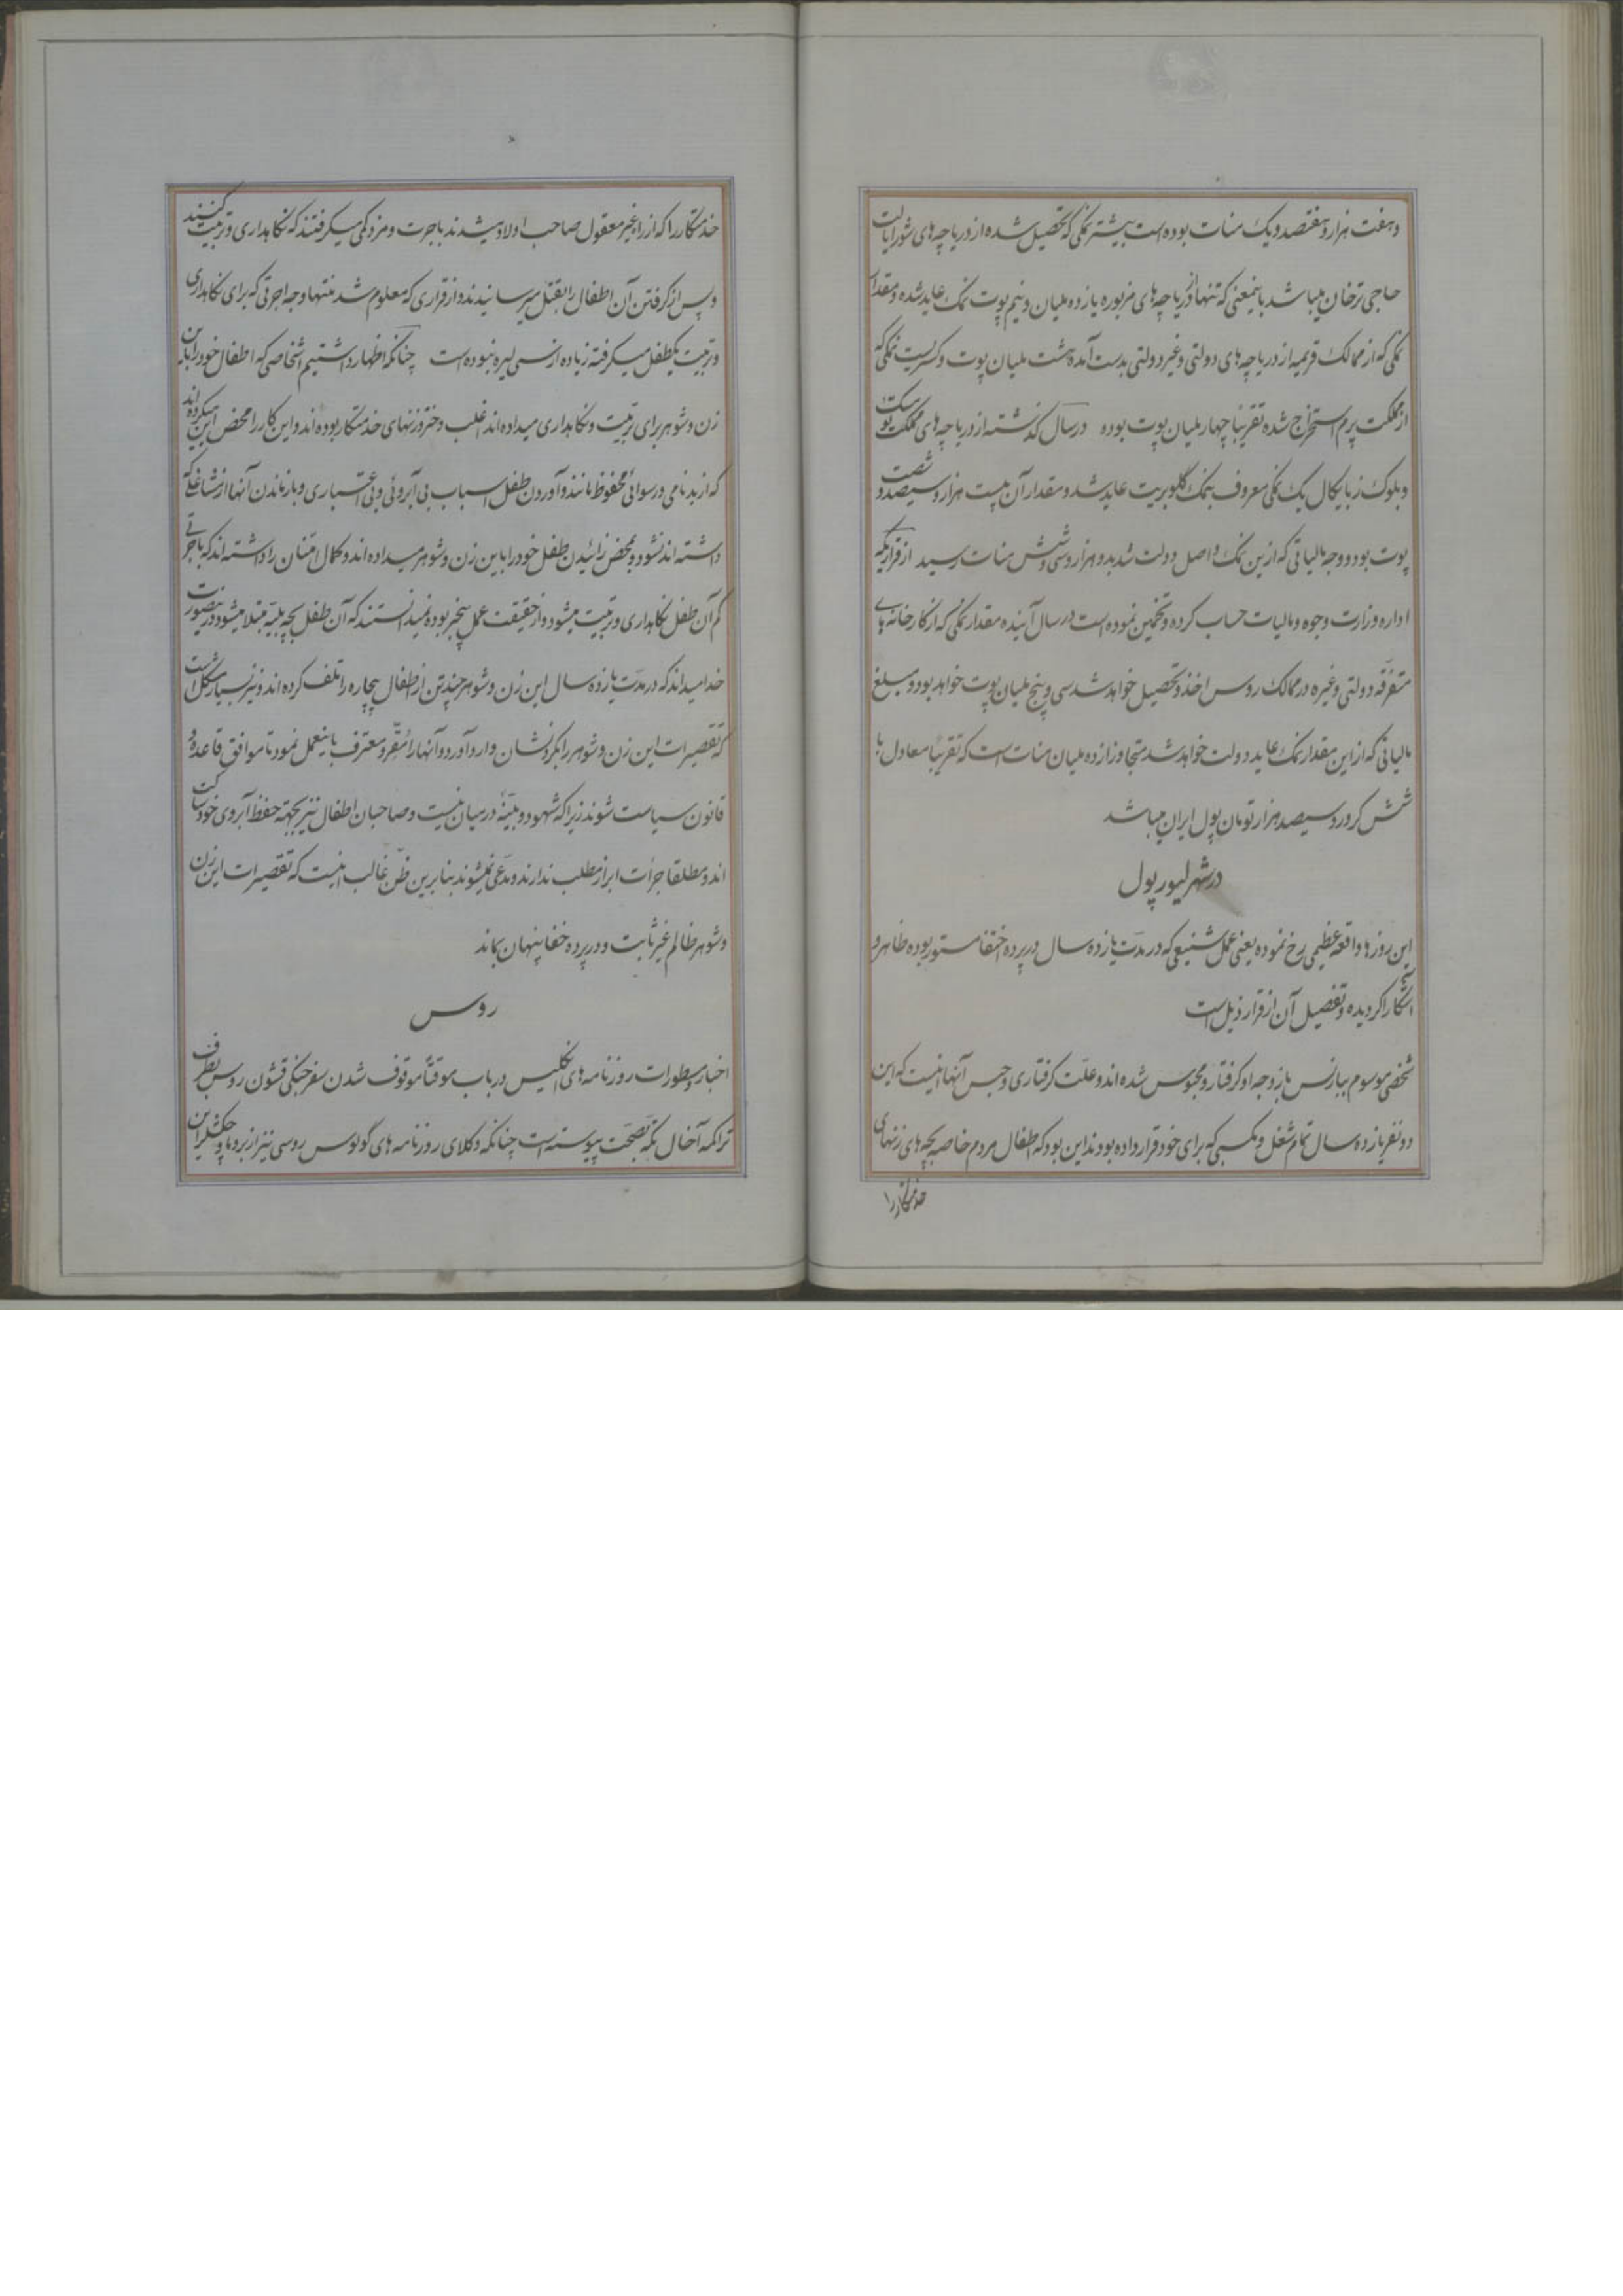 و هفت هزار و هفتصد و یک منات بوده است بیشتر نمکی که تحصیل شده از دریاچه های شور ایالت
حاجی ترخان میباشد باینمعنی که تنها از دریاچه های مزبوره یازده ملیان و نیم پوت نمک عاید شده و مقدار
نمکی که از ممالک قریمیه از دریاچه های دولتی و غیر دولتی بدست آمده هشت ملیان پوت و کسریست نمکی که
از مملکت پرم استخراج شده تقریبا چهار ملیان پوت بوده در سال گذشته از دریاچه های مملکت
و بلوک زبایکال یک نمکی معروف بنمک گلوبریت عاید شد و مقدار آن بیست هزار و سیصد و شصت
پوت بود و وجه مالیاتی که ازین نمک واصل دولت شد بدو هزار و سی و شش منات رسید از قراریکه
اداره وزارت وجوه و مالیات حساب کرده و تخمین نموده است در سال آینده مقدار نمکی که از کارخانه های
متفرقه دولتی و غیره در ممالک روس اخذ و تحصیل خواهد شد سی و پنج ملیان پوت خواهد بود و مبلغ
مالیاتی که از این مقدار نمک عاید دولت خواهد شد متجاوز از ده ملیان منات است که تقریبا معادل با
شش کرور و سیصد هزار تومان پول ایران میباشد
در شهر لیورپول
این روزها واقعه عظیمی رخ نموده یعنی عمل شنیعی که در مدت یازده سال در پرده اختفا مستور بوده ظاهر و
آشکارا گردیده و تفصیل آن از قرار ذیل است
شخصی موسوم ببارنس با زوجه او گرفتار و محبوس شده اند و علت گرفتاری و حبس آنها اینست که این
دو نفر یازده سال تمام شغل و مکسبی که برای خود قرار داده بودند این بود که اطفال مردم خاصه بچه های زنهای
خدمتکار را
خدمتکار را که از راه غیر معقول صاحب اولاد میشدند باجرت و مزد کمی میگرفتند که نگاهداری و تربیت کنند
و پس از گرفتن آن اطفال را بقتل میرسانیدند و از قراری که معلوم شد منتها وجه اجرتی که برای نگاهداری
و تربیت یکطفل میگرفته زیاده از سی لیره نبوده است چنانکه اظهار داشتیم اشخاصی که اطفال خود را باین
زن و شوهر برای تربیت و نگاهداری میداده اند اغلب دختر و زنهای خدمتکار بوده اند و این کار را محض این میکرده اند
که از بدنامی و رسوائی محفوظ مانند و آوردن طفل اسباب بی آبروئی و بی اعتباری و بازماندن آنها از مشاغلی که
داشته اند نشود و بمحض زائیدن طفل خود را باین زن و شوهر میداده اند و کمال امتنان را داشته اند که باجرتی
کم آن طفل نگاهداری و تربیت میشود و از حقیقت عمل بیخبر بوده نمیدانستند که آن طفل بچه بلیه مبتلا میشود در اینصورت
خدا میداند که در مدت یازده سال این زن و شوهر چند تن از اطفال بیچاره را تلف کرده اند و نیز بسیار مشکل است
که تقصیرات این زن و شوهر را بگردنشان وارد آورد و آنها را مقر و معترف باینعمل نمود تا موافق قاعده و
قانون سیاست شوند زیرا که شهود و بینه در میان نیست و صاحبان اطفال نیز بجهة حفظ آبروی خود ساکت
اند و مطلقا جرأت ابراز مطلب ندارند و مدعی نمیشوند بنابرین ظن غالب اینست که تقصیرات این زن
و شوهر ظالم غیر ثابت و در پرده خفا پنهان بماند
روس
اخبار و مسطورات روزنامه های انگلیس در باب موقتاً موقوف شدن سفر جنگی قشون روس بطرف
تراکمه آخال تکه بصحت پیوسته است چنانکه وکلای روزنامه های گولوس روسی نیز از